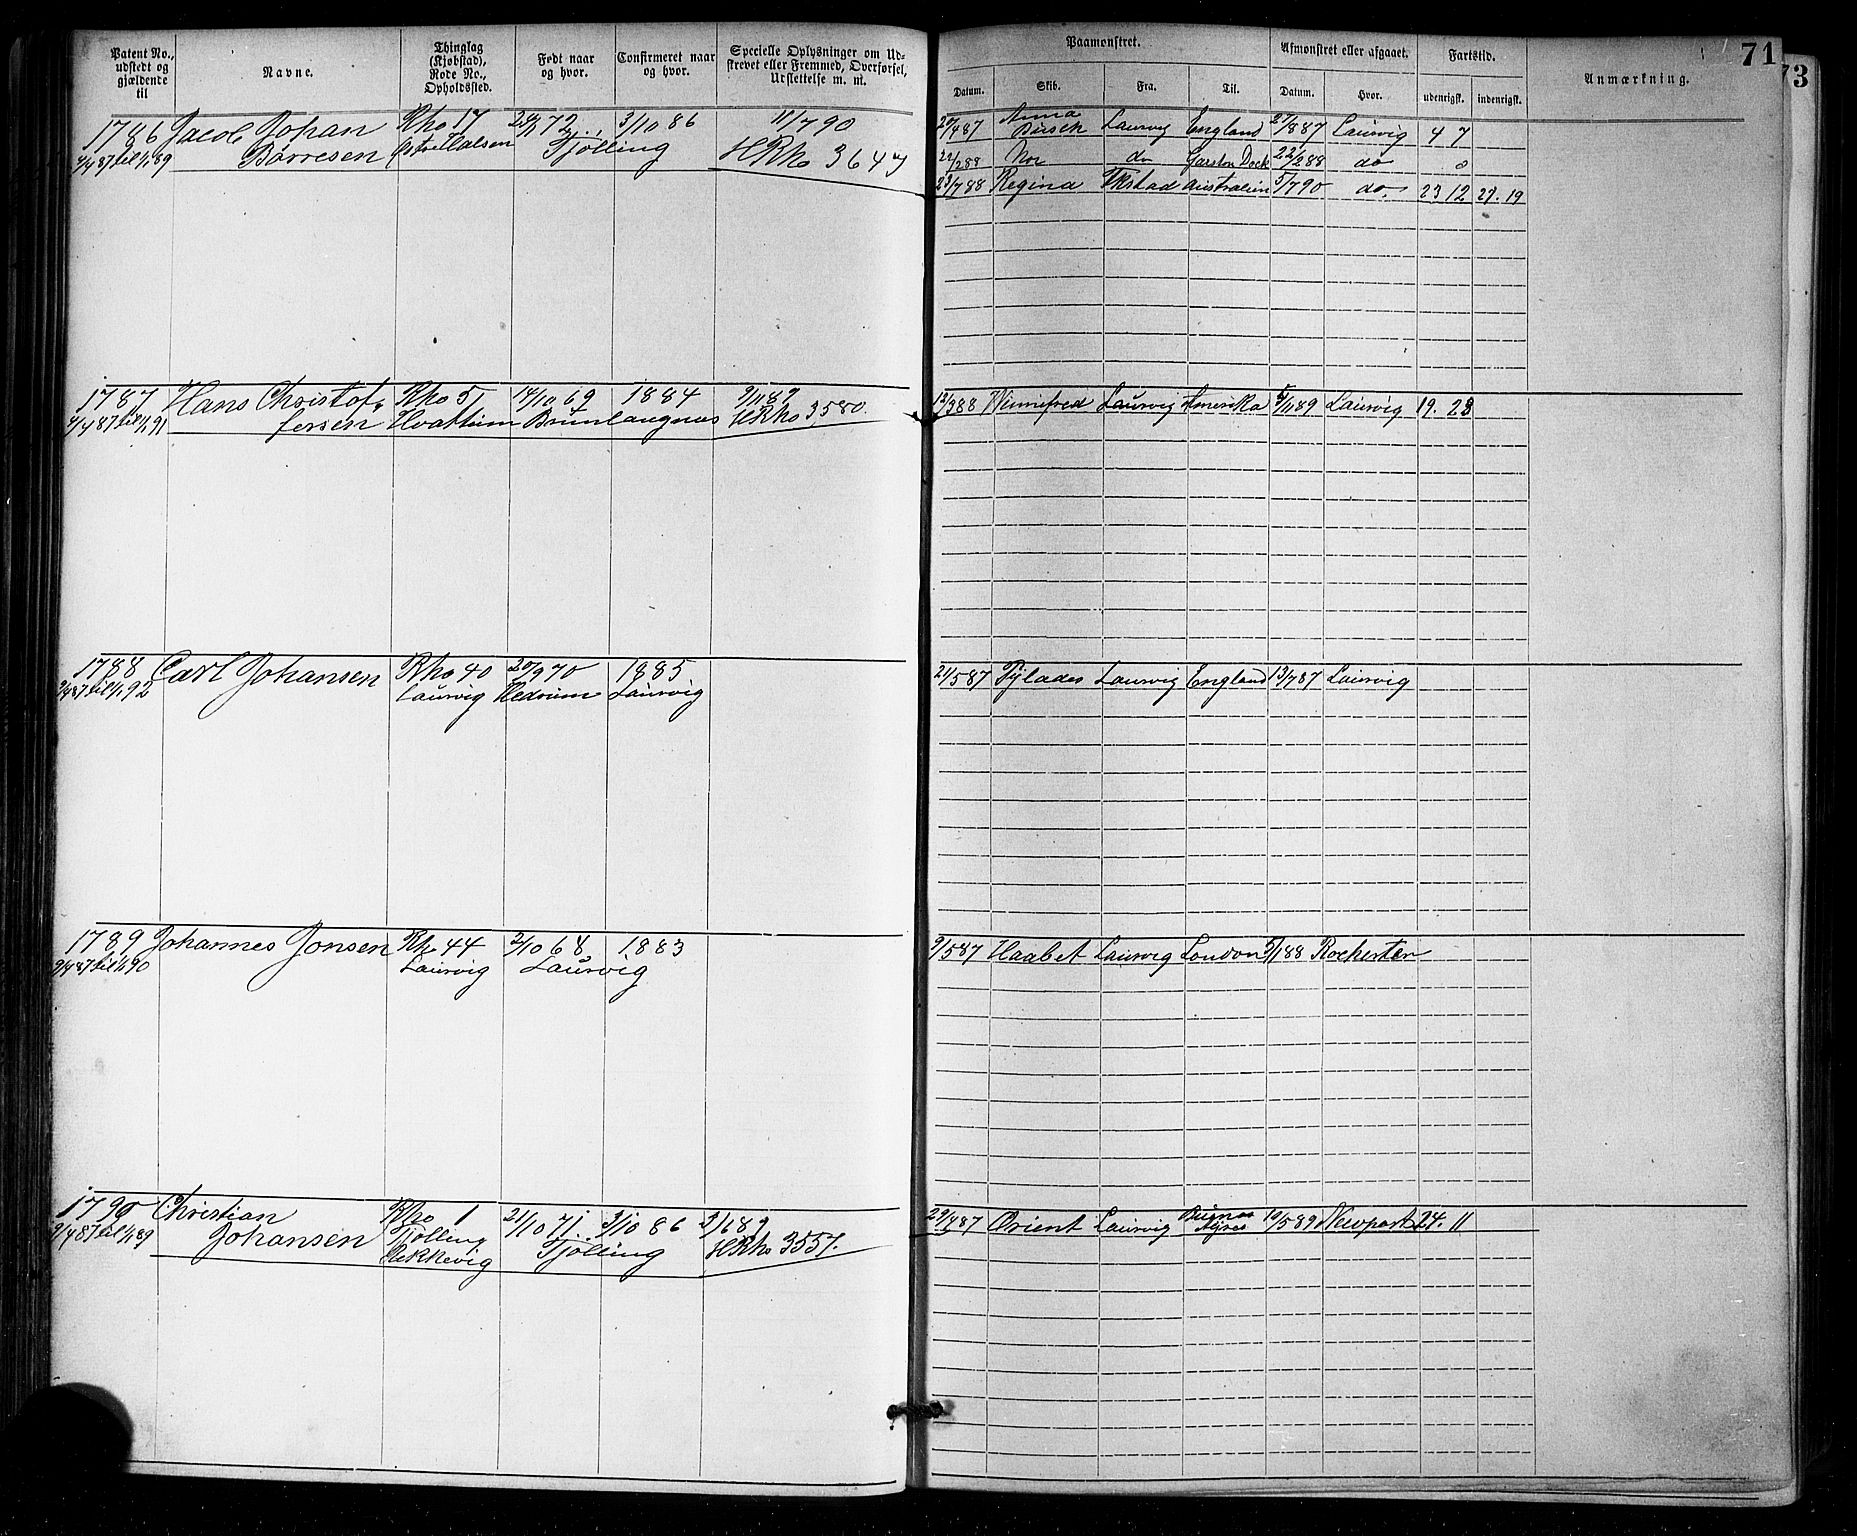 71
73
Patent No., udstedt og gjældende til
Navne.
Thinglag (Kjøbstad), Rode No., Opholdssted.
Født naar og hvor.
Confirmeret naar og hvor.
Specielle Oplysninger om Udskrevet eller Fremmed, Overførsel, Udslettelse m. m.
Paamønstret.
Afmønstret eller afgaaet.
Fartstid.
Anmærkning.
Datum. Skib. Fra. Til. Datum. Hvor. udenrigsk. indenrigsk.
1786 Jacob Johan Rno 17 72 3/10 86 11/7 90
Børresen Tjølling HRno 3647
Anna
20/4 87 Laurvig England 27/8 87 Laurvig 4 7
22/2 88 Nor do Garston Dock 22/2 88 do
23/7 88 Regina Ykstad Australien 5/7 90 do 23 12 27. 19
1787 Hans Christof- Rno 5 14/10 69 1884 9/11 89
9/4 87 til 1/1 91 fersen Hvattum Brunlangnæs HRno 3580.
12/3 88 Winnifred Laurvig Amerika 5/11 89 Laurvig 19. 23
1788 Carl Johansen Rno 40 20/9 70 1885
9/4 87 til 1/1 92 Laurvig Hedrum Laurvig
21/5 87 Pylades Laurvig England 13/7 87 Laurvig
1789 Johannes Jonsen Rno 44 2/10 68 1883
9/4 87 til 1/1 90 Laurvig Laurvig
9/5 87 Haabet Laurvig London 5/1 88 Rochester
1790 Christian Rno 1 21/10 71 3/10 86 3/6 89
9/4 87 til 1/1 89 Johansen Tjølling Tjølling HRno 3557.
Rekkevig
29/7 87 Orient Laurvig Buenos Ayres 10/5 89 Newport 24. 11